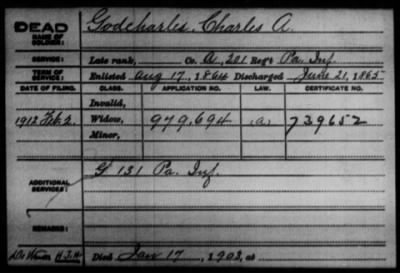 DEAD
NAME OF SOLDIER:
Godcharles, Charles A.
SERVICE: Late rank, Co. A, 201 Reg't Pa. Inf.
TERM OF SERVICE: Enlisted Aug 17, 1864 Discharged June 21, 1865
DATE OF FILING. CLASS. APPLICATION NO. LAW. CERTIFICATE NO.
Invalid,
1912 Feb. 2. Widow, 979,694 739652
Minor,
ADDITIONAL SERVICES: G 131 Pa. Inf.
REMARKS:
Died Jan 17, 1903, at